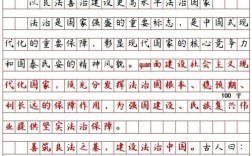 以良法善治建设更高水平法治国家
法治是国家强盛的重要标志,是中国式现
代化的重要保障,彰显现代国家的核心竞争力
和国泰民安的精神风貌。quan面建设社会主义现
代化国家,须充分发挥法治固根本、稳预期、
100字
利长远的保障作用,为强国建设、民族复兴伟
业提供坚实法治保障。
善筑良法之基,建设法治中国。古人曰: